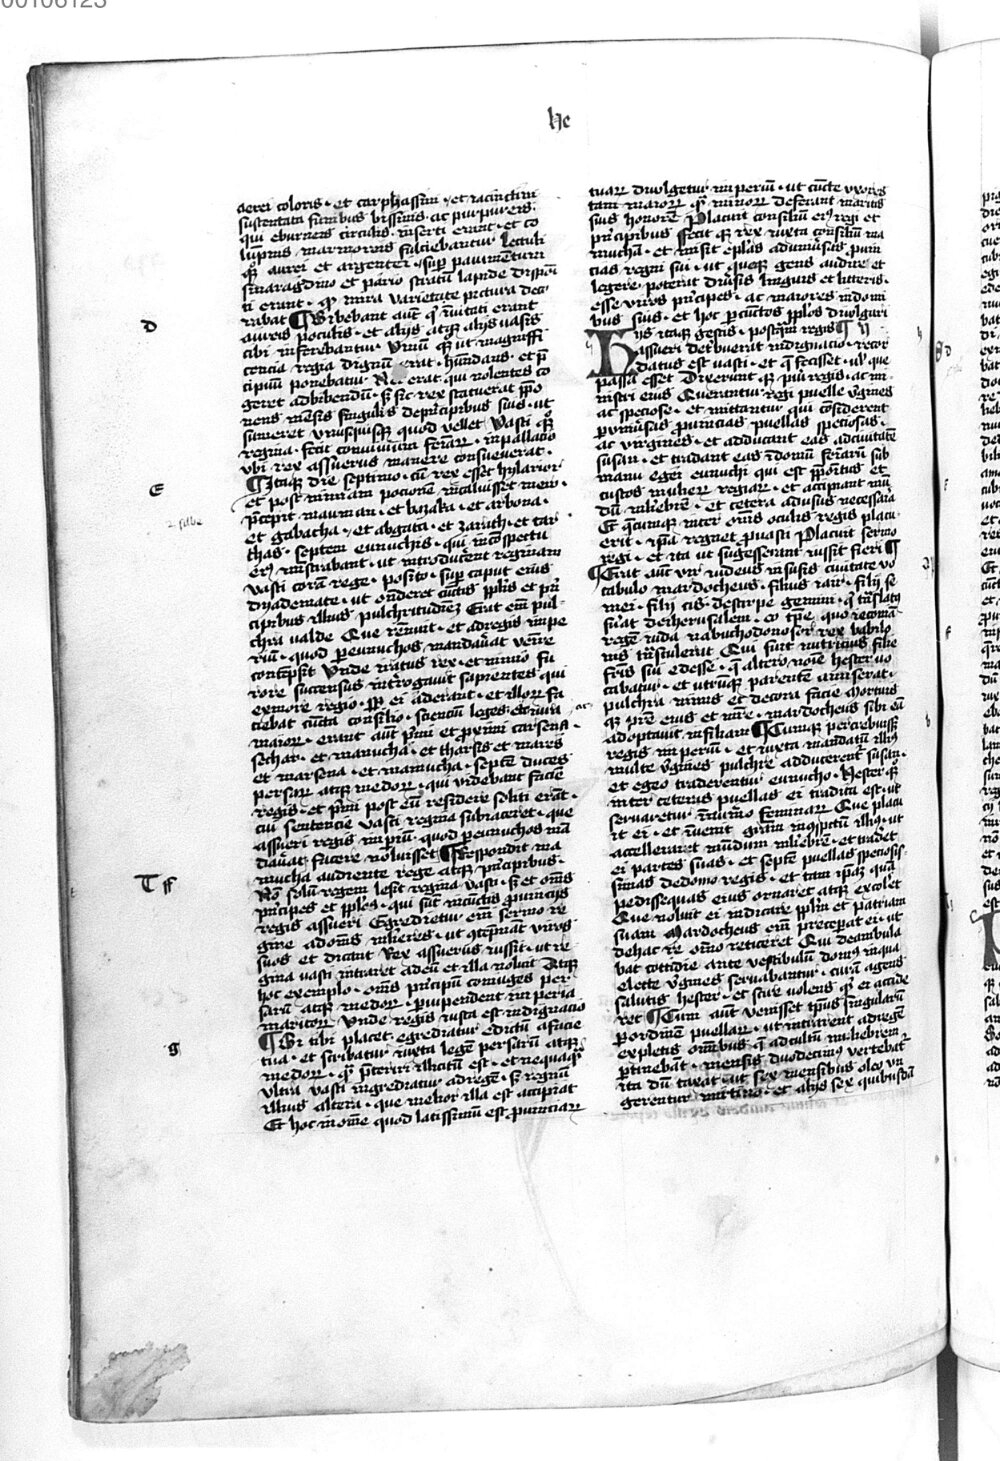 He
aerei coloris · et carphassini · et iacinctini
sustentata funibus bissinis · ac purpureis ·
qui eburneis circulis · inserti erant · et co
lu͞pnis marmoreis fulciebantur lectuli
qꝫ aurei et argentei · sup̱ pauimentum
smaragdino et pario stratum lapide dispoī
ti erant · qḋ mira varietate pictura deco
rabat ¶ Bibebant aut̄ qͥ īuitati erant
aureis poculis · et alijs atqꝫ alijs vasis
cibi inferebantur Vinū qꝫ ut magniffi
cencia regia dignū erat · habundans · et p̄
cipuū ponebatur Nec erat qui nolentes co
geret ad bibendū · sꝫ sic rex statuerat p̄po
nens mensis singulis de principibus suis · ut
sumeret vnusquisqꝫ quod vellet Vasti qꝫ
regina · fecit conuiuium femaꝝ · in pallacio
vbi rex assuerus manere consueuerat ·
¶ Itaqꝫ die septimo · cū rex esset hylarior
et post nimiam pocionē incaluisset mero ·
p̄cepit mauman · et bazata · et arbona ·
et gabatha · et abgata · et zarath · et tar
thas · septem eunuchis · qui in cōspectu
eiꝰ ministrabant · ut introducerent reginam
vasti corā rege · posito · sup̱ caput eius
dyademate · ut oñderet cūctis pp̄lis et prī
cipibus illius pulchritudinē Erat em̄ pul
chra valde Que rēnuit · et ad regis impe
riū · quod p̱ eunuchos mandauat venire
contēpsit Vnde iratus rex · et nimio fu
rore succensus interrogauit sapientes qui
ex more regio · sꝑ ei aderant · et illoꝝ fa
ciebat cūcta consilio · scientiū leges et iura
maioꝝ · erant aut̄ p̄mi et p̱ximi carsena ·
sechar · et manucha · et tharsis et mares
et marsena · et mamucha · septē duces
persaꝝ atqꝫ medoꝝ · qui videbant faciē
regis · et p̄mi post eū residere soliti erāt ·
cui sentencie vasti regina subiaceret · que
assueri regis imp̱iū · quod p̱ eunuchos mā
dauat facere noluisset ¶ Respondit ma
mucha audiente rege atqꝫ principibus ·
Nō solū regem lesit regina vasti · sꝫ et om̄s
principes et pp̄los · qui sūt in cūctis ꝓuincijs
regis assueri Egredietur em̄ sermo re
gine ad om̄s mulieres · ut cōtēpnāt viros
suos et dicant Rex assuerus iussit · ut re
gina vasti intraret ad eū et illa noluit Atqꝫ
hoc exemplo · om̄s principū coniuges per
saꝝ atqꝫ medoꝝ · p̱uipendent imperia
maritoꝝ Vnde regis iusta est indignacio
¶ Si tibi placet · egrediatur edictū a facie
tua · et scribatur iuxta legē persaꝝ atqꝫ
medoꝝ · qḋ p̄teriri illicitū est · et nequaqꝫ
vltra vasti ingrediatur ad regē · sꝫ regnū
illius altera · que melior illa est accipiat
Et hoc in om̄e quod latissimū est ꝓuinciaꝝ
D
E
T ff
g
tuaꝝ diuulgetur imperiū · ut cūcte vxores
tam maioꝝ qͣꝫ minoꝝ deferant maritis
suis honorē Placuit consiliū eiꝰ regi et
principibus fecit qꝫ rex iuxta consiliū ma
mucha · et misit ep̄las ad vniūsas ꝓuin
cias regni sui · ut queqꝫ gens audire et
legere poterat diuersis linguis et litteris ·
esse viros principes · ac maiores in domi
bus suis · et hoc p̱ cūctos pp̄los diuulgari
Hijs itaqꝫ gestis · postqͣm regis ¶ ij
assueri deferbuerat indignacio · recor
datus est vasti · et qͣ fecisset · ul' que
passa esset Dixerunt qꝫ pueri regis · ac mi
nistri eius Querantur regi puelle virgines
ac speciose · et mittantur qui considerent
p̱ vniūsas ꝓuincias puellas speciosas ·
ac virgines · et adducant eas ad ciuitatē
susan · et tradant eas ī domū femaꝝ sub
manu egei eunuchi qui est p̄positus et
custos mulieꝝ regiaꝝ · et accipiant mū
dū muliebrē · et cetera ad usus necessaria
Et qͥcumqꝫ inter om̄s oculis regis placu
erit · ip̄a regnet ꝓ vasti Placuit sermo
regi · et ita ut suggesserant iussit fieri ¶
¶ Erat aut̄ vir iudeus in susis ciuitate vo
cabulo mardocheus · filius iair · filij se
mei · filij cis · de stirpe gemini · qͥ trāslatꝰ
fuat de iherusalem · eo tp̄e quo iecomā
regē iuda nabuchodonosor rex babilo
nis trāstulerat Qui fuit nutricius filie
fr̄is sui edesse · qͣ altero noīe hester vo
cabatur · et utrumqꝫ parentē amiserat ·
pulchra nimis et decora facie Mortuis
qꝫ pr̄e eius et mr̄e · mardocheus sibi eā
adoptauit in filiam ¶ Cumqꝫ percrebruisset
regis imperiū · et iuxta mandatū illiꝰ
multe virgines pulchre adducerentur susan ·
et egeo traderentur eunucho · Hester qꝫ
inter ceteras puellas ei tradita est · ut
seruaretur · ī nūmo feminaꝝ Que placu
it ei · et īuenit graciam in cōspectu illiꝰ · ut
acceleraret mūdum muliebrē · et traderet
ei partes suas · et septē puellas speciosis
simas de domo regis · et tam ip̄am qͣm
pedissequas eius ornaret atqꝫ excolet
Que noluit ei indicare pp̄lm et patriam
suam Mardocheus em̄ preceperat ei · ut
de hac re om̄no reticeret Qui deambula
bat cottidie ante vestibulū domꝰ in qua
electe virgines seruabantur · curā agens
salutis hester · et scire volens qͥd ei accide
ret ¶ Cum aut̄ venisset tp̄us singulaꝝ
p̱ ordinē puellaꝝ · ut intrarent ad regē
expletis om̄ibus qͣ ad cultū muliebrem
p̱tinebāt · mensis duodecimꝰ vertebat
ita dū taxat · ut sex mensibus oleo vn
gerentur mirtino · et alijs sex quibusdā